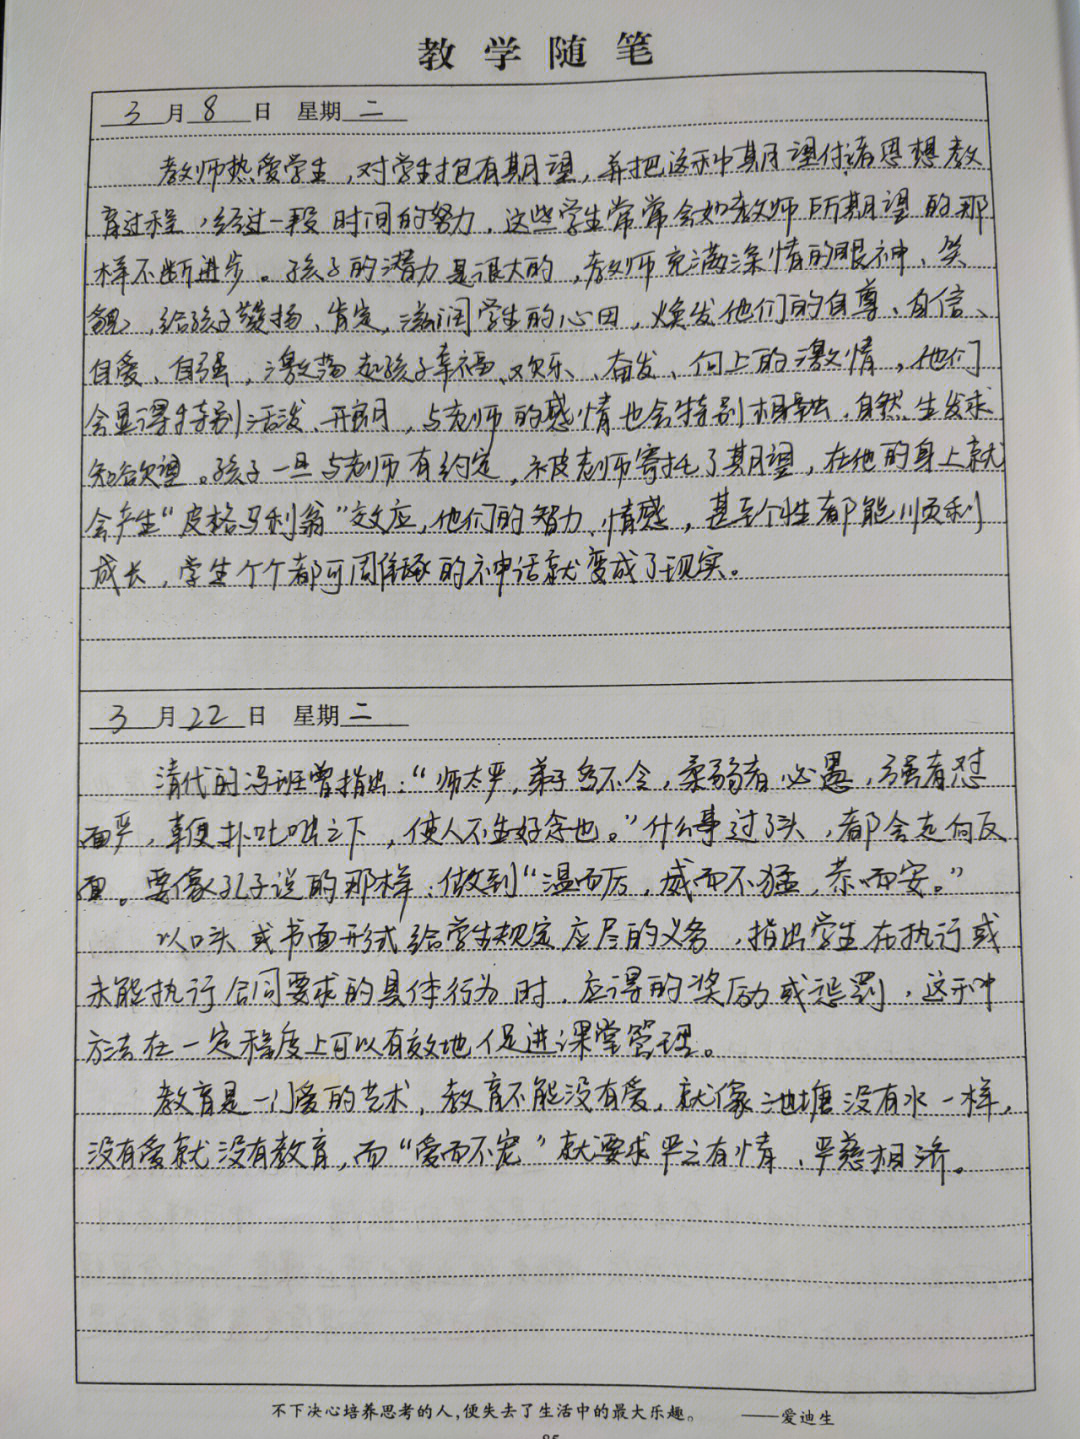 教学随笔
3月8日 星期二
教师热爱学生,对学生抱有期望,并把这种期望付诸思想教
育过程,经过一段时间的努力,这些学生常常会如教师所期望的那
样不断进步。孩子的潜力是很大的,教师充满深情的眼神、笑
貌,给孩子赞扬、肯定,滋润学生的心田,焕发他们的自尊、自信、
自爱、自强,激荡起孩子幸福、欢乐、奋发、向上的激情,他们
会显得特别活泼、开朗,与老师的感情也会特别相融,自然生发求
知欲望。孩子一旦与老师有约定,被老师寄托了期望,在他的身上就
会产生“皮格马利翁”效应,他们的智力、情感,甚至个性都能顺利
成长,学生个个都可周偟琢的神话就变成了现实。
3月22日 星期二
清代的冯班曾指出:“师太严,弟子多不令,柔弱者必愚,强者怼
而严,鞭扑叱咄之下,使人不生好念也。”什么事过了头,都会走向反
面。要像孔子说的那样:做到“温而厉,威而不猛,恭而安。”
以口头或书面形式给学生规定应尽的义务,指出学生在执行或
未能执行合同要求的具体行为时,应得的奖励或惩罚,这种
方法在一定程度上可以有效地促进课堂管理。
教育是一门爱的艺术,教育不能没有爱,就像池塘没有水一样,
没有爱就没有教育,而“爱而不宠”就要求严之有情、严慈相济。
不下决心培养思考的人,便失去了生活中的最大乐趣。 ——爱迪生